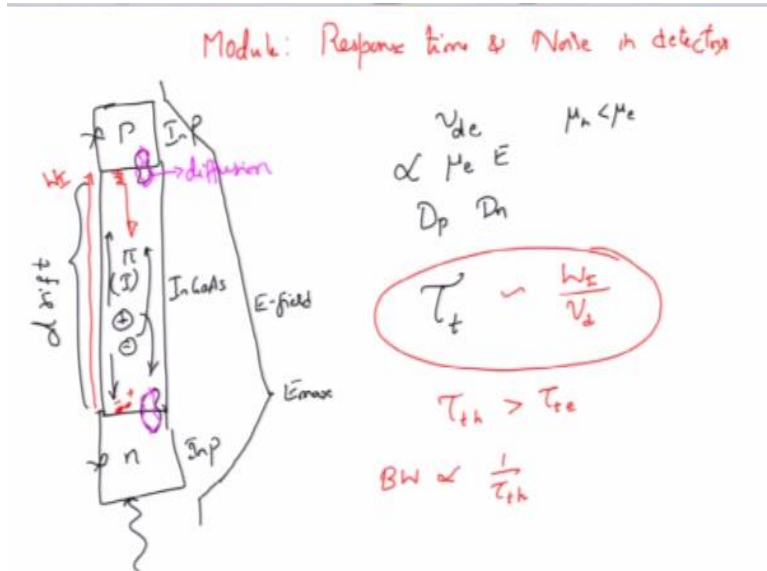 Module: Response time & Noise in detectors
P InP
W_I
→diffusion
drift
π
(I)
InGaAs
E-field
+
-
Emax
n InP
v_de μ_h < μ_e
∝ μ_e E
D_p D_n
τ_t ~ W_I / v_d
τ_th > τ_te
BW ∝ 1 / τ_th